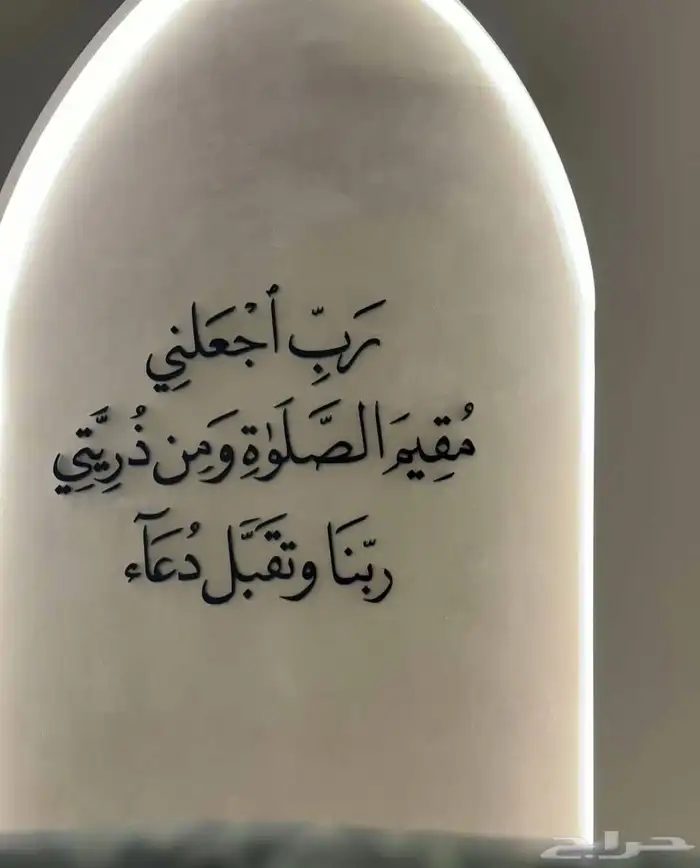 رَبِّ ٱجْعَلنِي
مُقِيمَ الصَّلَوٰةِ وَمِن ذُرِيَّتِي
ربّنَا وتقَبَّل دُعَآء
حراج